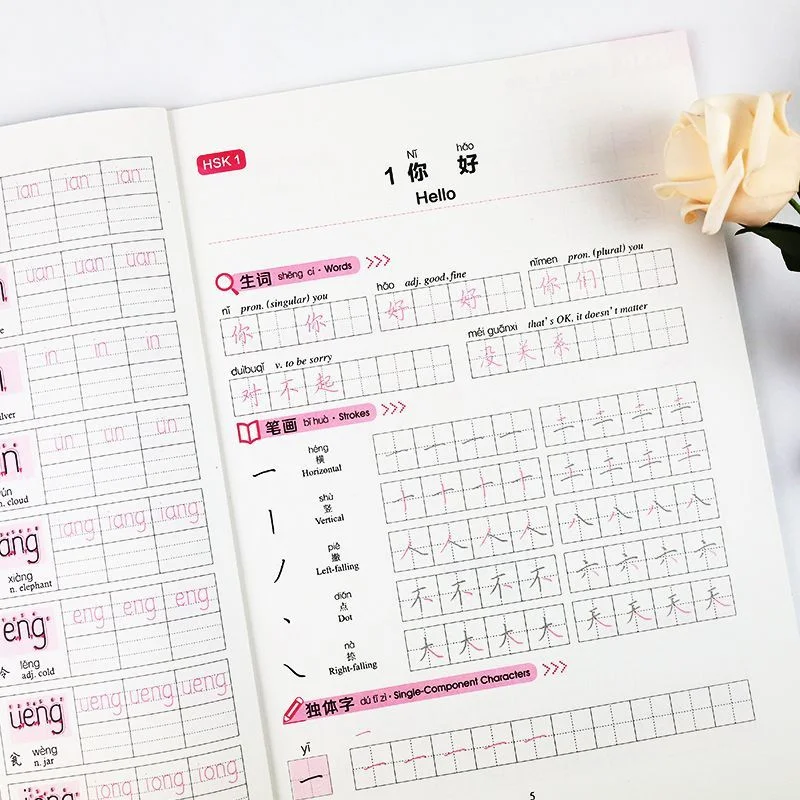 ian ian ian
uan uan uan
in in in
ün ün ün
n. cloud
iang iang iang
xiàng
n. elephant
eng eng eng eng
冷
lěng
adj. cold
ueng ueng ueng ueng
瓮
wèng
n. jar
iong iong iong
HSK 1
Nǐ hǎo
1 你 好
Hello
生词 shēng cí · Words
nǐ pron. (singular) you
你 你
hǎo adj. good, fine
好 好
nǐmen pron. (plural) you
你 们
duìbuqǐ v. to be sorry
对 不 起
méi guānxi that's OK, it doesn't matter
没 关 系
笔画 bǐ huà · Strokes
héng
横
Horizontal
一 一 一 一 二 二 二 二
shù
竖
Vertical
十 十 十 十 工 工 工 工
piě
撇
Left-falling
人 人 人 人 八 八 八 八
diǎn
点
Dot
不 不 不 不 六 六 六 六
nà
捺
Right-falling
大 大 大 大 天 天 天 天
独体字 dú tǐ zì · Single-Component Characters
yī
一
一
一 一 一 一 一
5